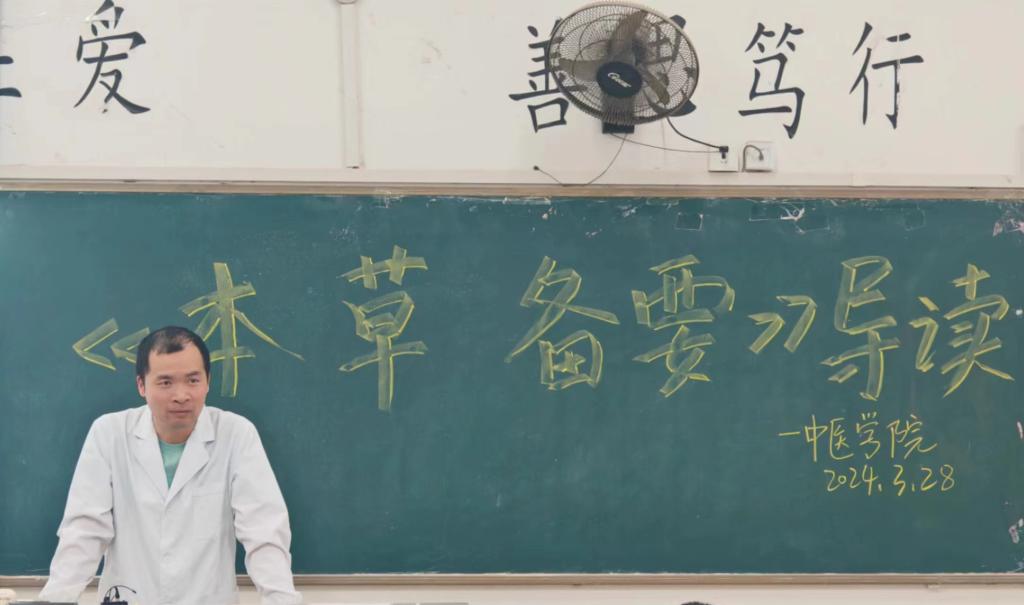 爱 善思笃行
《本草备要》导读
一中医学院
2024.3.28